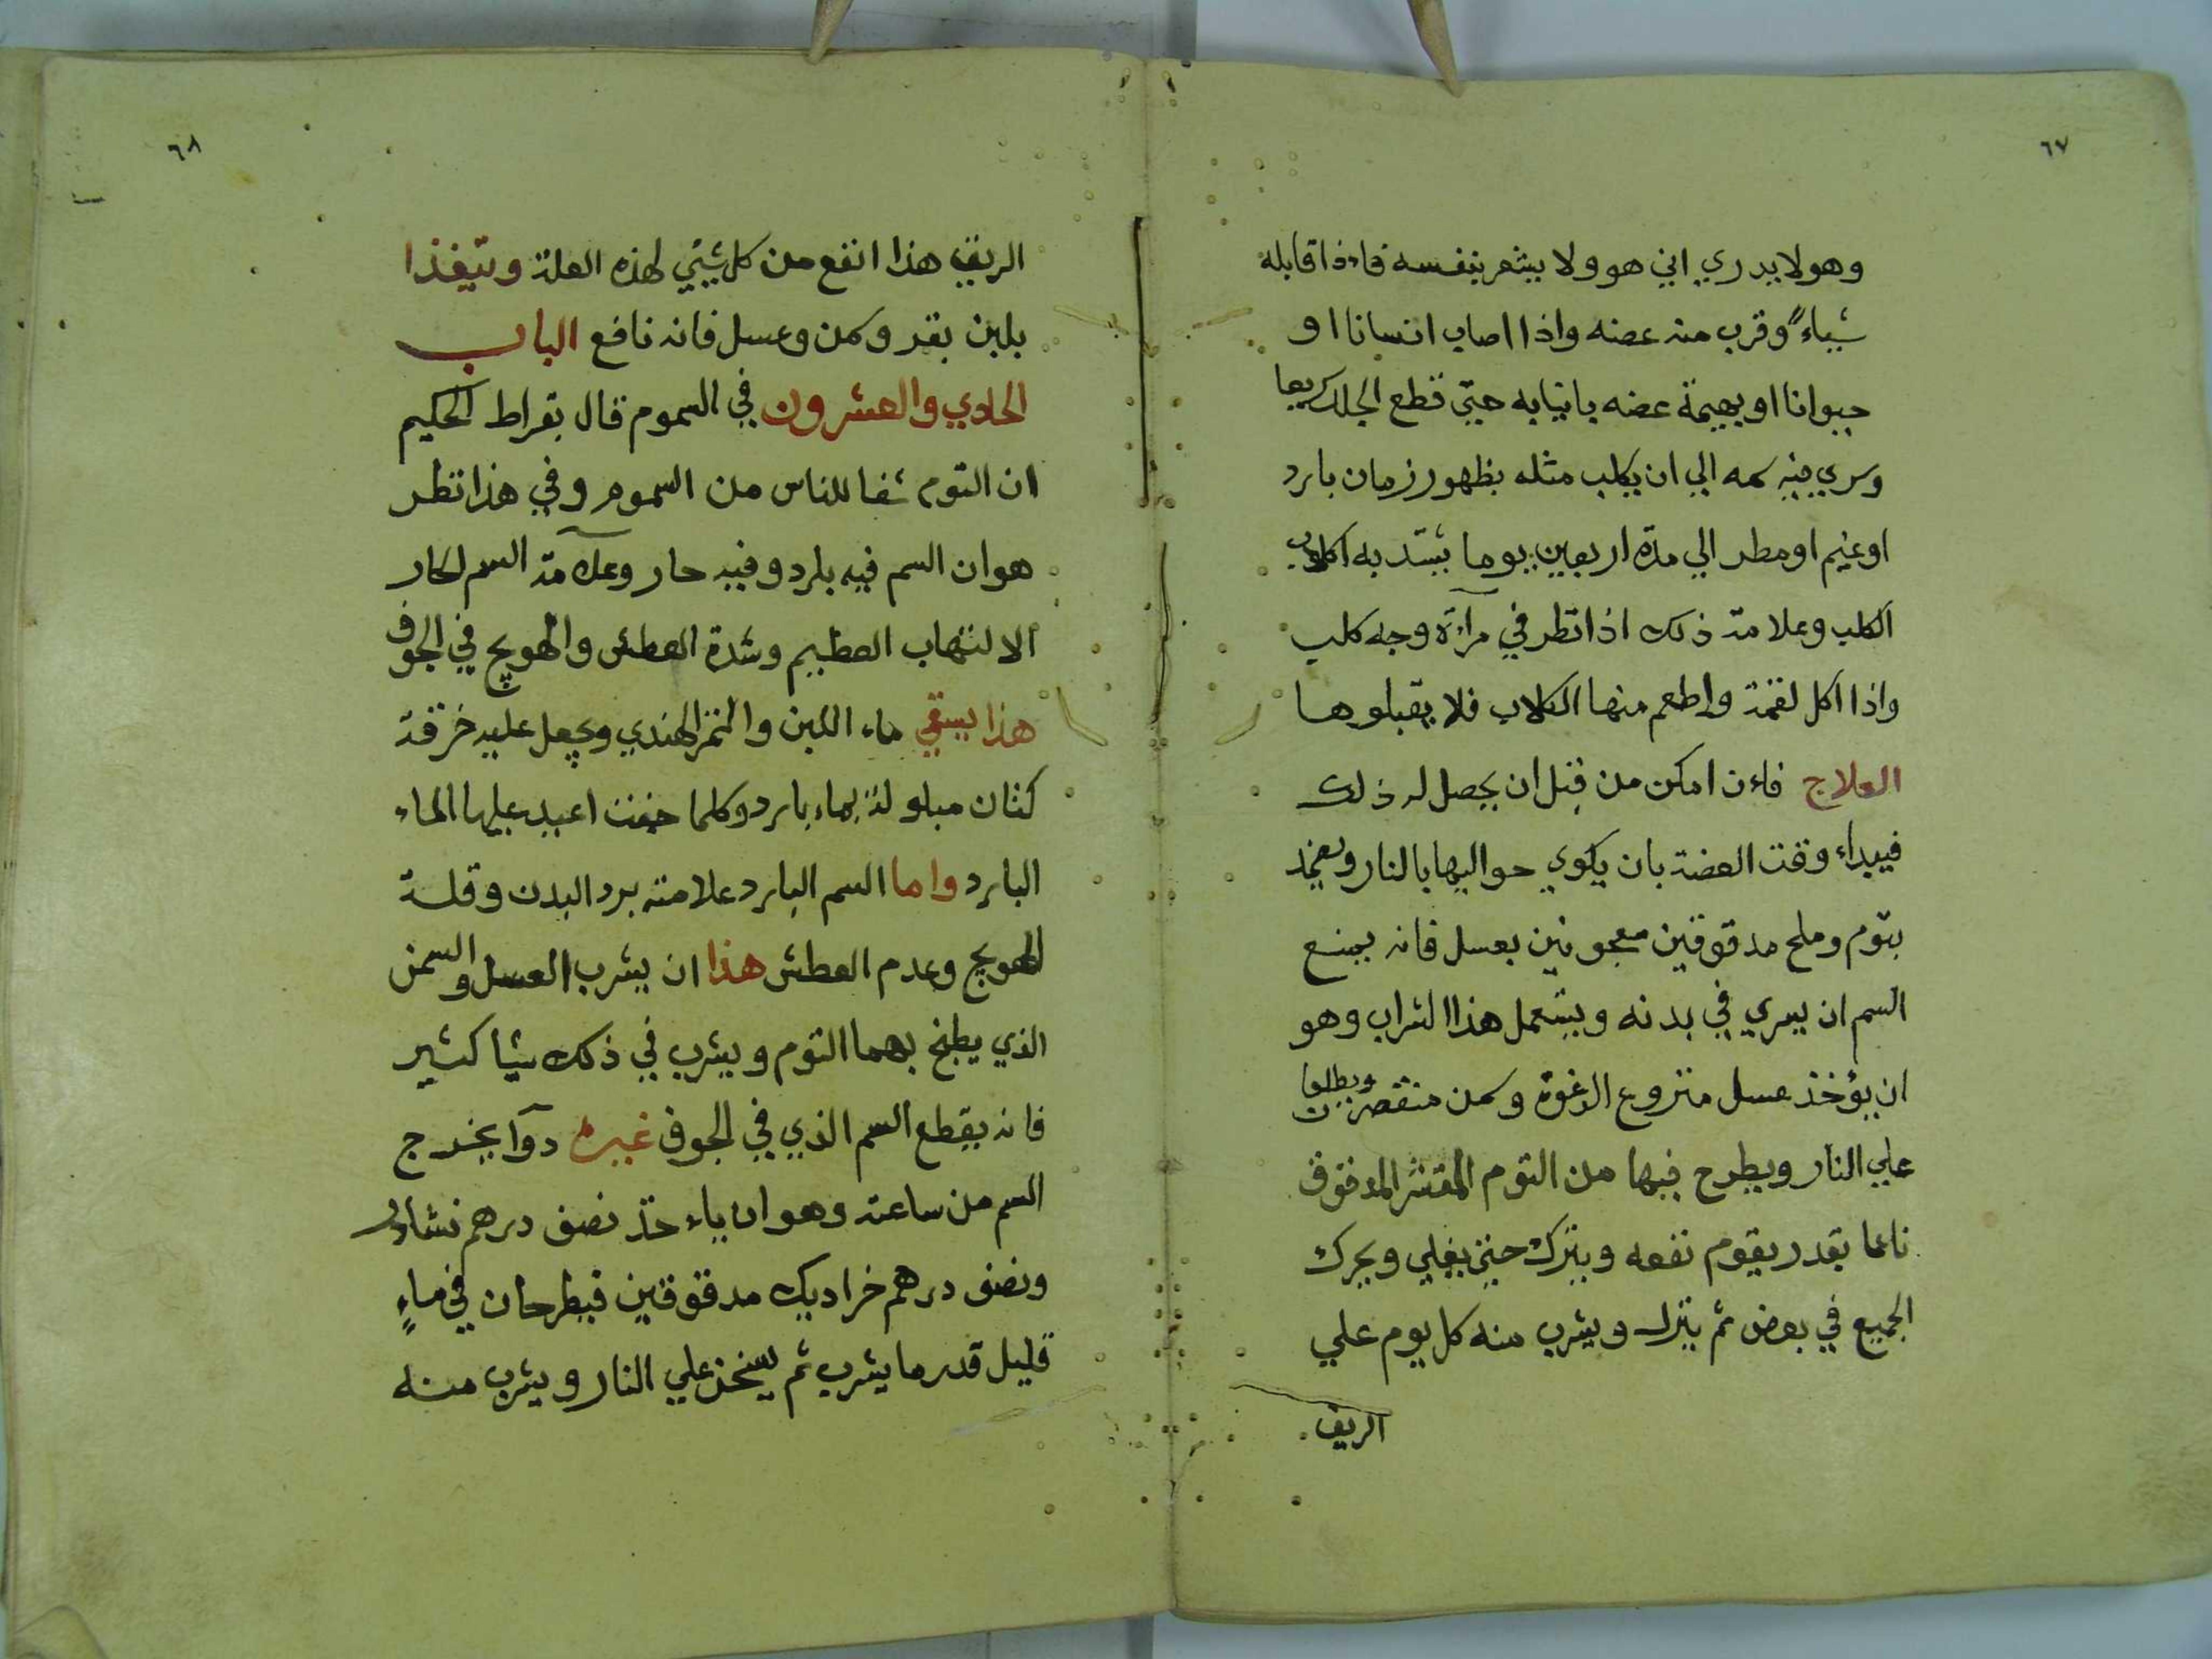 ٦٧
وهو لا يدري اني هو ولا يشعر بنفسه فاءذا قابله
شياءً وقرب منه عضه واذا اصاب انسانا او
حيوانا او بهيمة عضه بانيابه حتي قطع الجلد
وسري فيه سمه الي ان يكلب مثله بظهور زمان بارد
او غيم او مطر الي مدة اربعين يوما يشتد به
الكلب وعلامة ذلك اذا نظر في مرآءة وجه كلب
واذا اكل لقمة واطعم منها الكلاب فلا يقبلوها
العلاج فاءن امكن من قبل ان يحصل له ذلك
فيبداء وقت العضة بان يكوي حواليها بالنار ويضمد
بتوم وملح مدقوقين معجونين بعسل فانه يمنع
السم ان يسري في بدنه ويستعمل هذا الشراب وهو
ان يؤخذ عسل منزوع الرغوة وسمن
علي النار ويطرح فيها من التوم المقشر المدقوق
ناعما بقدر يقوم نفعه ويترك حتي يغلي ويحرك
الجميع في بعض ثم ينزل ويشرب منه كل يوم علي
الريق
٦٨
الريق هذا انفع من كل شيئي لهذه العلة ويتغذا
بلبن بقر وسمن وعسل فانه نافع الباب
الحادي والعشرون في السموم قال بقراط الحكيم
ان التوم شفا للناس من السموم وفي هذا نظر
هو ان السم فيه بارد وفيه حار وعلآمة السم الحار
الالتهاب العظيم وشدة العطش والهويج في الجوف
هذا يسقي ماء اللبن والتمر الهندي ويجعل عليه خرقة
كتان مبلولة بماء بارد وكلما جففت اعيد عليها الماء
البارد واما السم البارد علامته برد البدن وقلة
الهويج وعدم العطش هذا ان يشرب العسل والسمن
الذي يطبخ بهما التوم ويشرب في ذلك شيا كثير
فانه يقطع السم الذي في الجوف غيره دوآ يخرج
السم من ساعته وهو ان ياءخذ نصف درهم نشادر
ونصف درهم خرا ديك مدقوقين فيطرحان في ماءٍ
قليل قدر ما يشرب ثم يسخن علي النار ويشرب منه